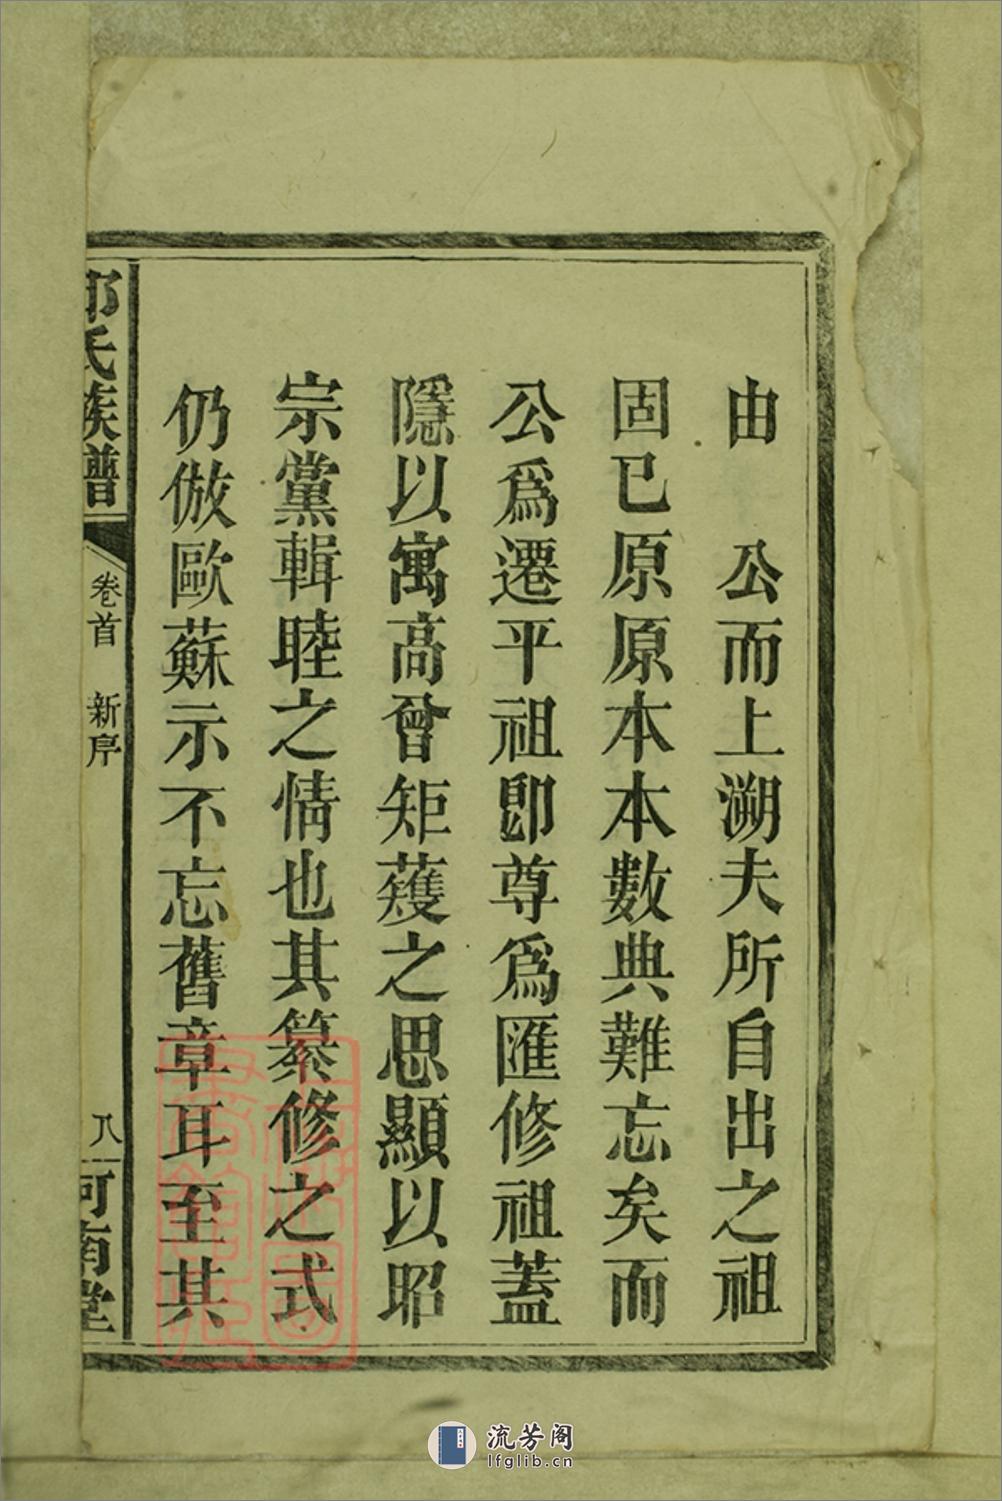 由　公而上溯夫所自出之祖
固已原原本本數典難忘矣而
公爲遷平祖卽尊爲匯修祖蓋
隱以寓高曾矩蒦之思顯以昭
宗黨輯睦之情也其纂修之式
仍倣歐蘇示不忘舊章耳至其
氏族譜
卷首　新序
八
河南堂
流芳阁
lfglib.cn